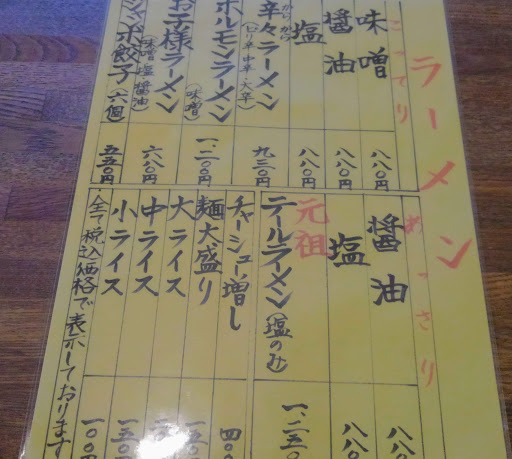 ラーメン
こってり
味噌 八八〇円
醤油 八八〇円
塩 八八〇円
辛々ラーメン (ピリ辛 中辛・大辛) 九三〇円
からから
ホルモンラーメン (味噌) 一、二〇〇円
お子様ラーメン (味噌 塩 醤油) 六八〇円
ジャンボ餃子 (六個) 五五〇円
あっさり
醤油 八八
塩 八八〇
元祖
テールラーメン (塩のみ) 一、二五〇
チャーシュー増し 四〇
麺大盛り
大ライス
中ライス 一五〇
小ライス 一〇〇円
・全て税込価格で表示しております